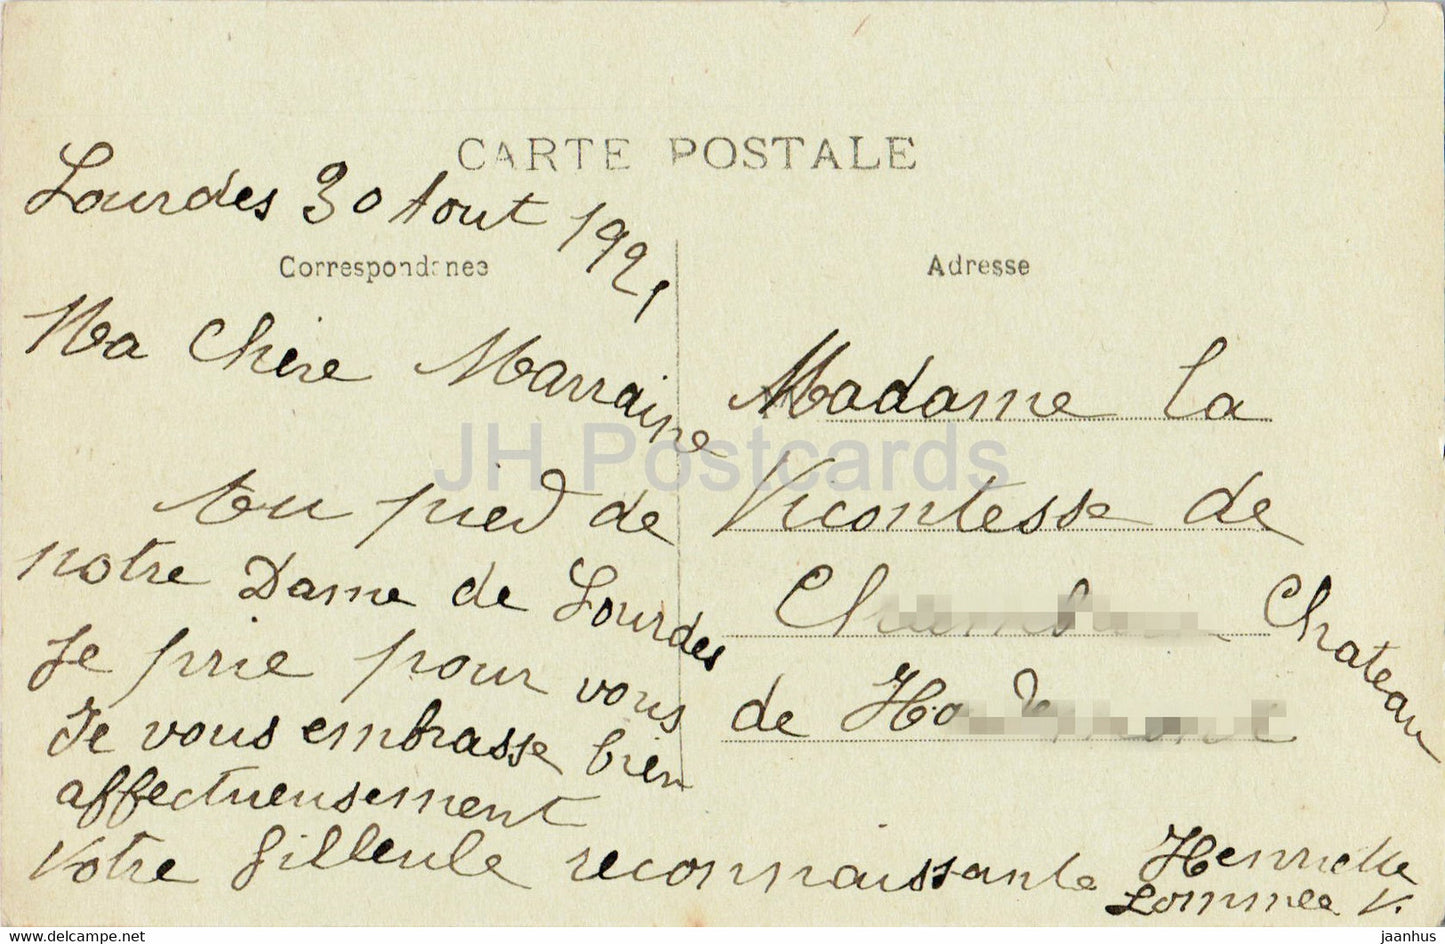 CARTE POSTALE
Lourdes 30 Aout 1921
Correspondance
Ma Chère Marraine
Au pied de
notre Dame de Lourdes
Je prie pour vous
Je vous embrasse bien
affectueusement
Votre filleule reconnaissante Henriette
V.
Adresse
Madame la
Vicontesse de
Chateau
de
JH Postcards
hippostcard.com
jaanhus